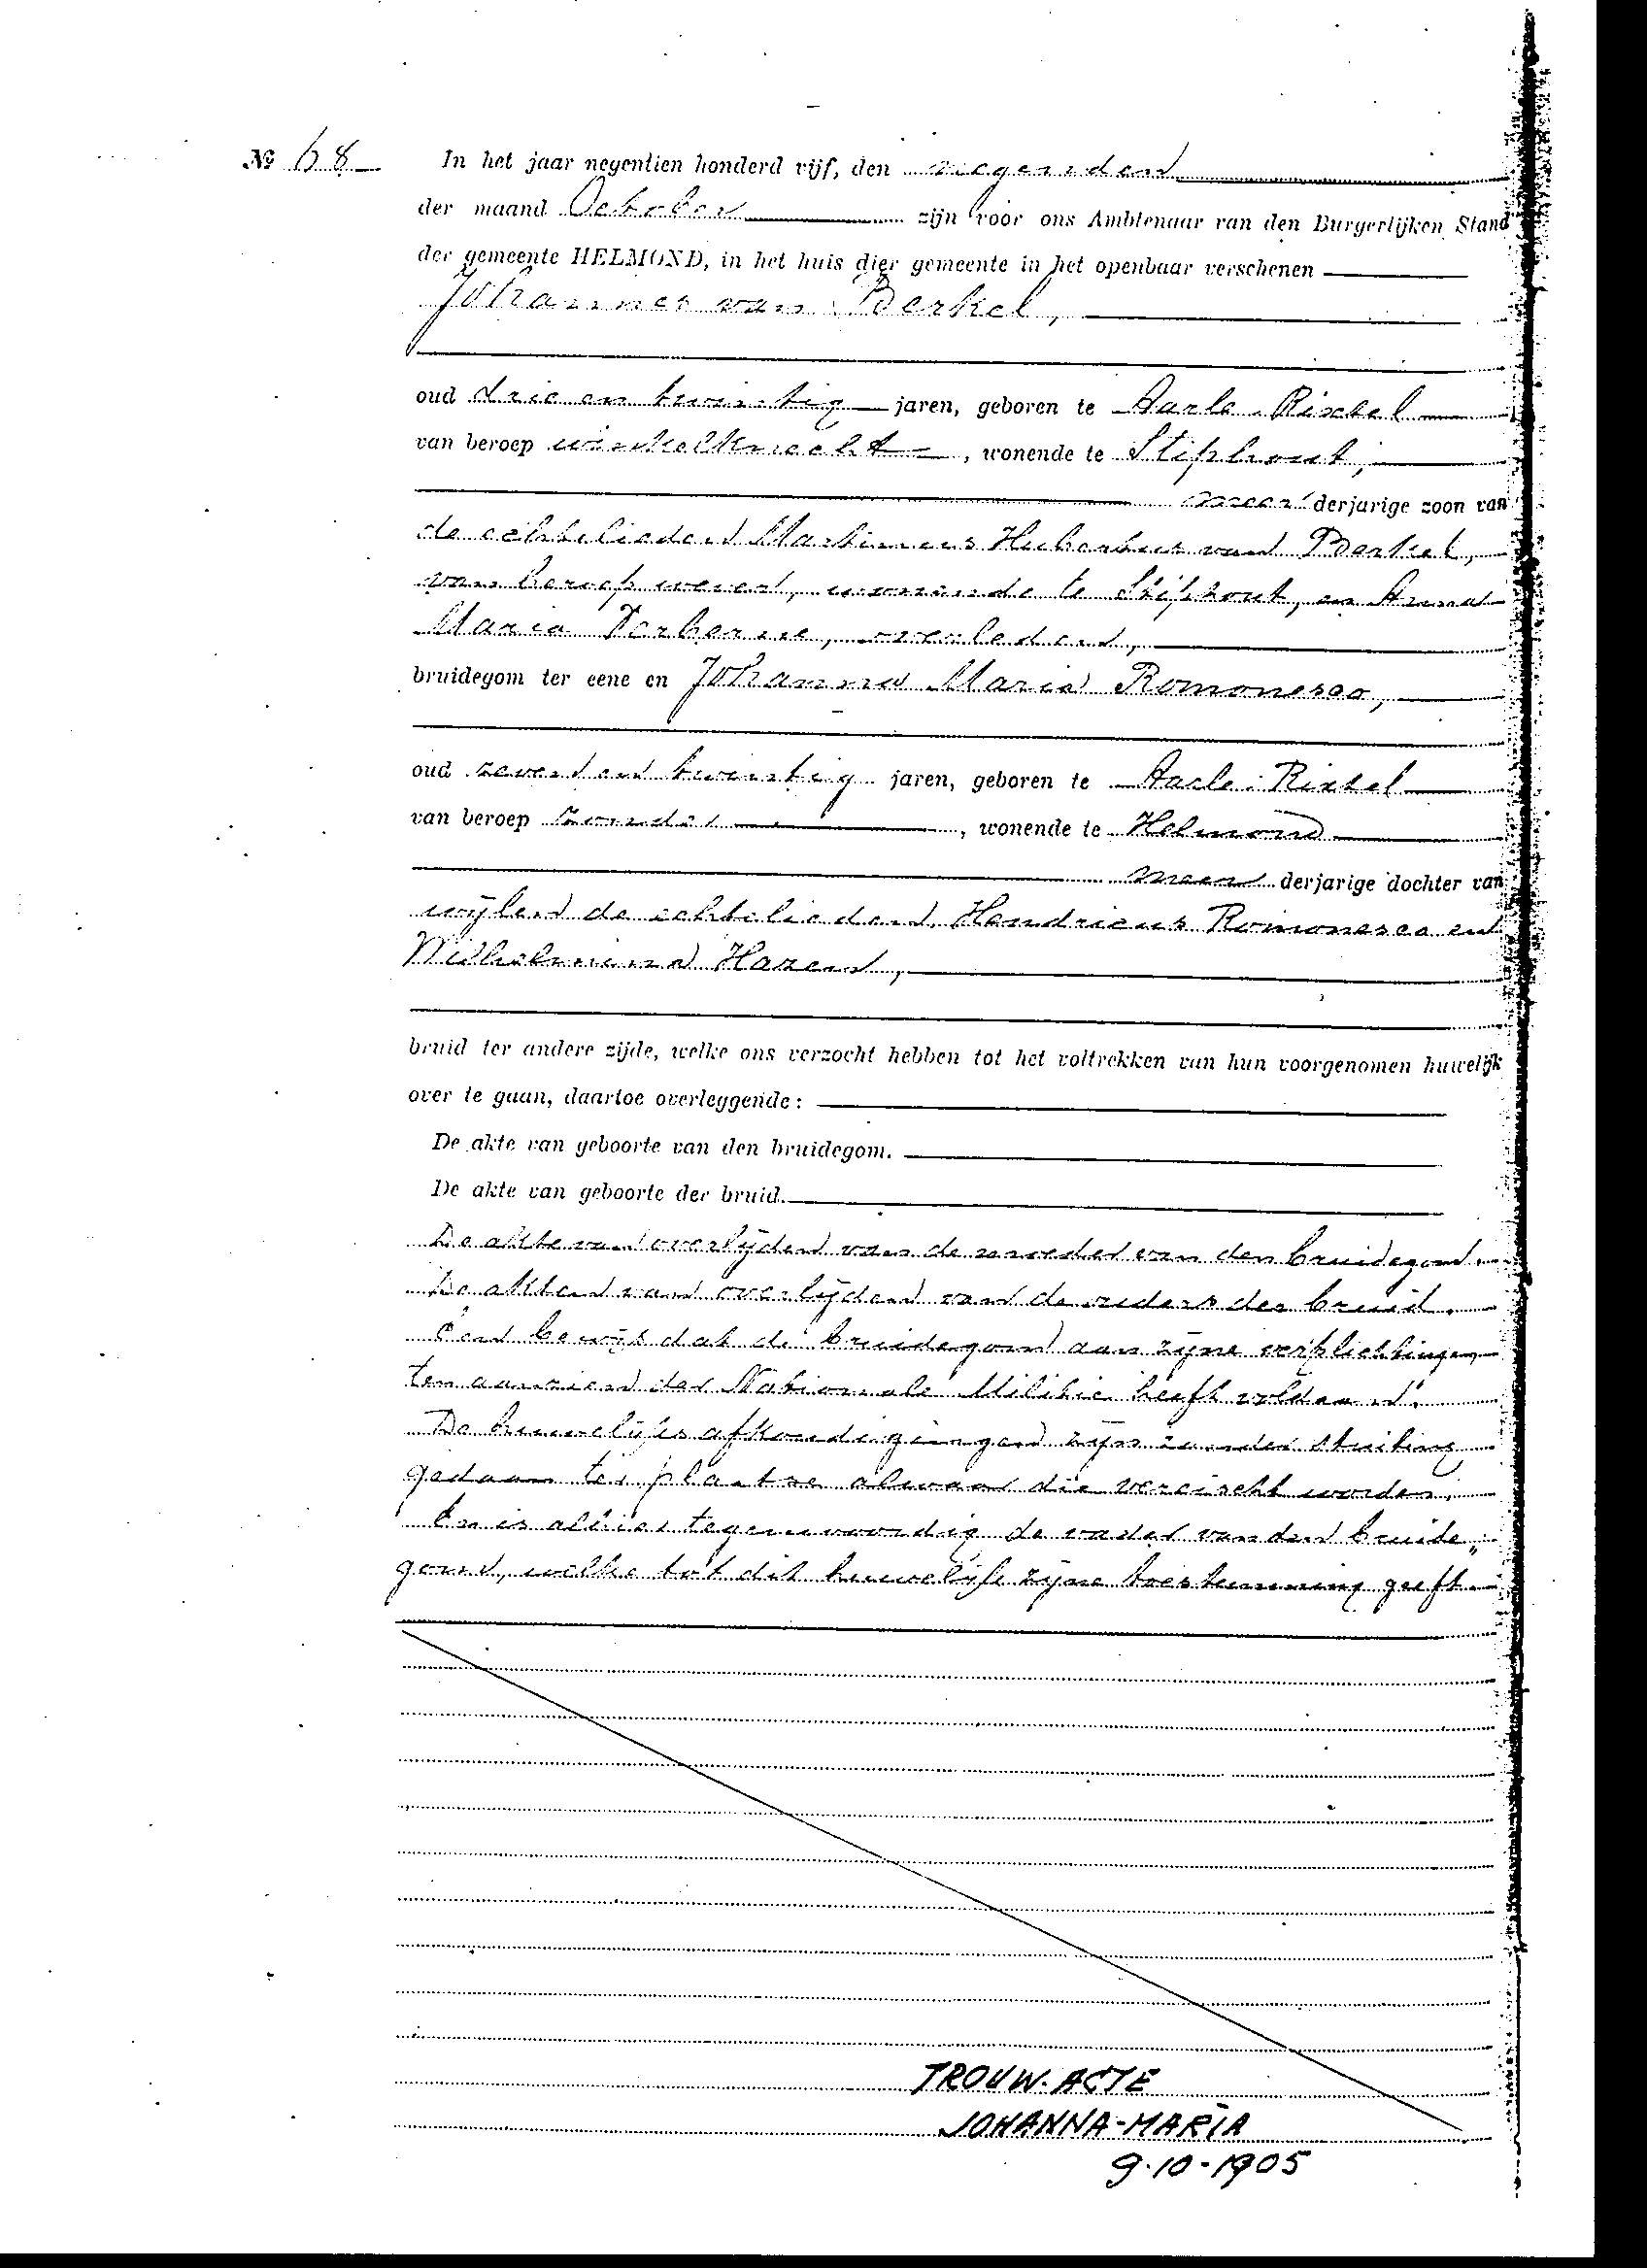 № 68 In het jaar negentien honderd vijf, den negenden
der maand October zijn voor ons Ambtenaar van den Burgerlijken Stand
der gemeente HELMOND, in het huis dier gemeente in het openbaar verschenen
Johannes van Berkel,
oud drie en twintig jaren, geboren te Aarle-Rixtel
van beroep winkelknecht, wonende te Stiphout,
meer derjarige zoon van
de echtelieden Martinus Hubertus van Berkel,
van beroep wever, wonende te Stiphout, en Anna
Maria Verberne, overleden,
bruidegom ter eene en Johanna Maria Romonesco,
oud zeven en twintig jaren, geboren te Aarle-Rixtel
van beroep zonder, wonende te Helmond
meer derjarige dochter van
wijlen de echtelieden Hendricus Romonesco en
Wilhelmina Hazen,
bruid ter andere zijde, welke ons verzocht hebben tot het voltrekken van hun voorgenomen huwelijk
over te gaan, daartoe overleggende:
De akte van geboorte van den bruidegom.
De akte van geboorte der bruid.
De akte van overlijden van de moeder van den bruidegom.
De akten van overlijden van de ouders der bruid.
Een bewijs dat de bruidegom aan zijne verplichtingen
ten aanzien der Nationale Militie heeft voldaan.
De huwelijks afkondigingen zijn zonder stuiting
gedaan ter plaatse alwaar die vereischt worden.
En is alhier tegenwoordig de vader van den bruide„
gom, welke tot dit huwelijk zijne toestemming geeft.
TROUW-ACTE
JOHANNA-MARIA
9-10-1905